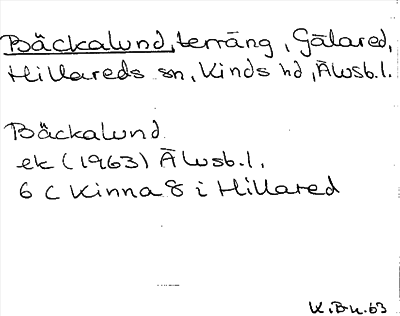 Bäckalund, terräng, Gälared,
Hillareds sn, Kinds hd, Älvsb. l.
Bäckalund
ek (1963) Älvsb. l.
6 C Kinna 8 i Hillared
K. Bn. 63